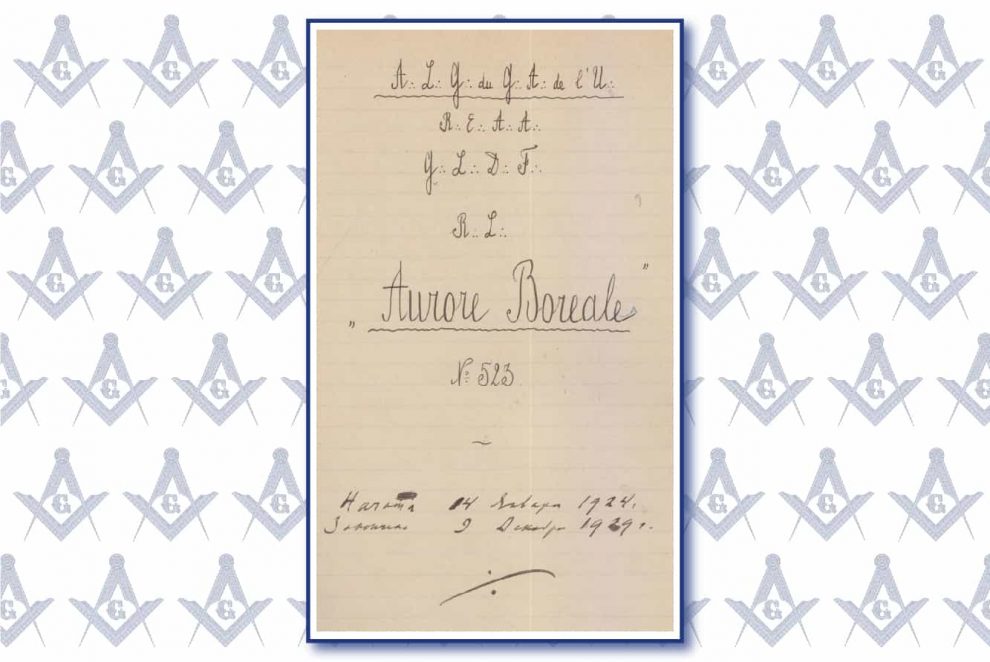 A∴ L∴ G∴ du G∴ A∴ de l'U∴
R∴ E∴ A∴ A∴
G∴ L∴ D∴ F∴
R∴ L∴
„Aurore Boreale”
№ 523
~
14 Января 1924 г.
9 Декабря 1929 г.